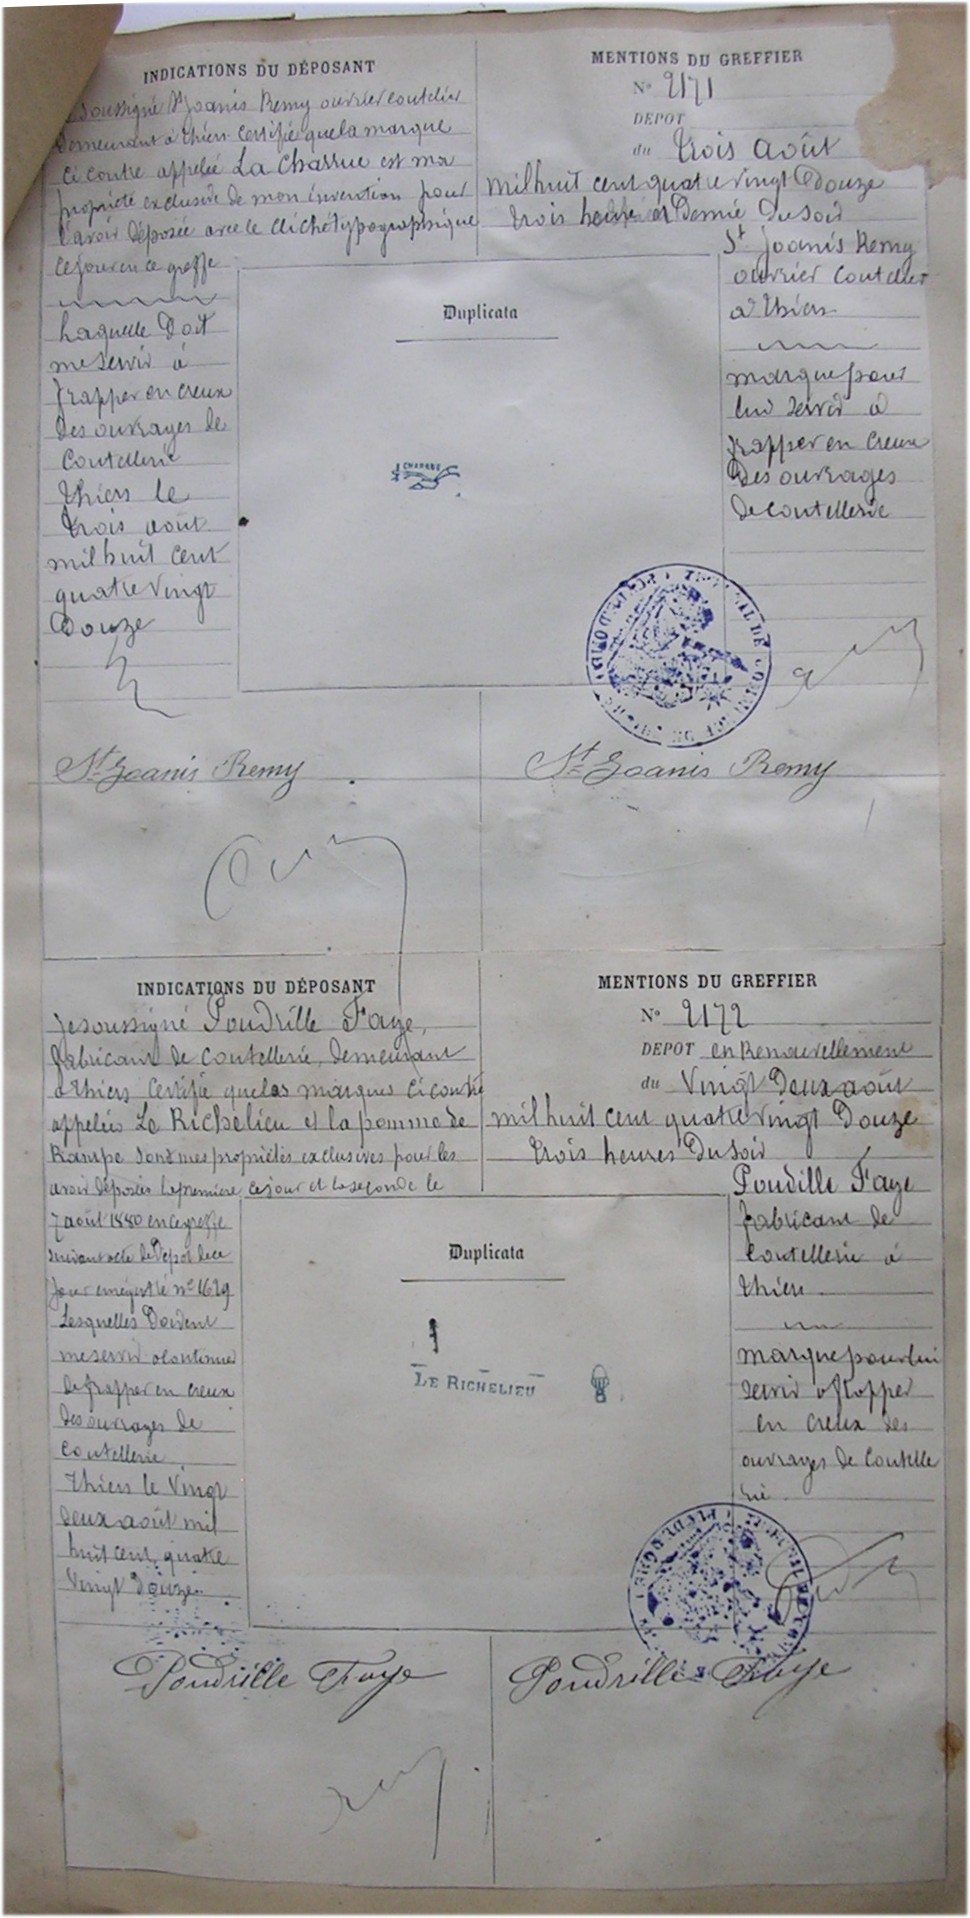 INDICATIONS DU DÉPOSANT
soussigné St Joanis Remy ouvrier coutelier
Demeurant à Thiers certifie que la marque
ci contre appelée La Charrue est ma
propriété exclusive de mon invention pour
l'avoir déposée avec le clichétypographique
ce jour en ce greffe
Laquelle Doit
me servir à
frapper en creux
Des ouvrages de
Coutellerie
Thiers le
trois août
mil huit cent
quatre vingt
Douze
MENTIONS DU GREFFIER
No 2171
DEPOT
du trois août
mil huit cent quatre vingt Douze
trois heures et Demie Du soir
St Joanis Remy
ouvrier coutelier
à Thiers
marque pour
lui servir à
frapper en creux
Des ouvrages
de coutellerie
Duplicata
CHARRUE
St Joanis Remy
St Joanis Remy
INDICATIONS DU DÉPOSANT
Je soussigné Poudrille Faye,
fabricant de coutellerie, Demeurant
à Thiers certifie que les marques ci contre
appelées Le Richelieu et la pomme de
Rampe sont mes propriétés exclusives pour les
avoir déposées la première ce jour et la seconde le
7 août 1880 en ce greffe
suivant acte de Dépot de ce
jour enregistré no 1629
Lesquelles Doivent
me servir à continuer
de frapper en creux
des ouvrages de
Coutellerie
Thiers le vingt
deux août mil
huit cent quatre
vingt douze
MENTIONS DU GREFFIER
No 2172
DEPOT en Renouvellement
du Vingt Deux août
mil huit cent quatre vingt Douze
trois heures Du soir
Poudille Faye
fabricant de
Coutellerie à
Thiers
marque pour lui
servir à frapper
en creux des
ouvrages de Coutelle
rie
Duplicata
LE RICHELIEU
Poudrille Faye
Poudrille Faye